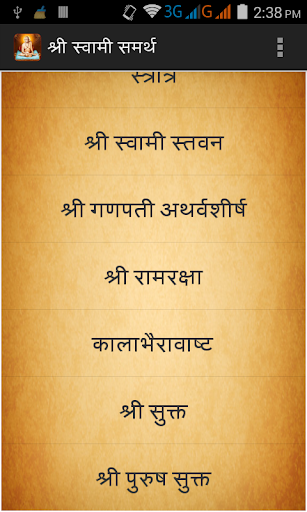 3G G 2:38 PM
श्री स्वामी समर्थ
स्त्रोत्र
श्री स्वामी स्तवन
श्री गणपती अथर्वशीर्ष
श्री रामरक्षा
कालाभैरावाष्ट
श्री सुक्त
श्री पुरुष सुक्त